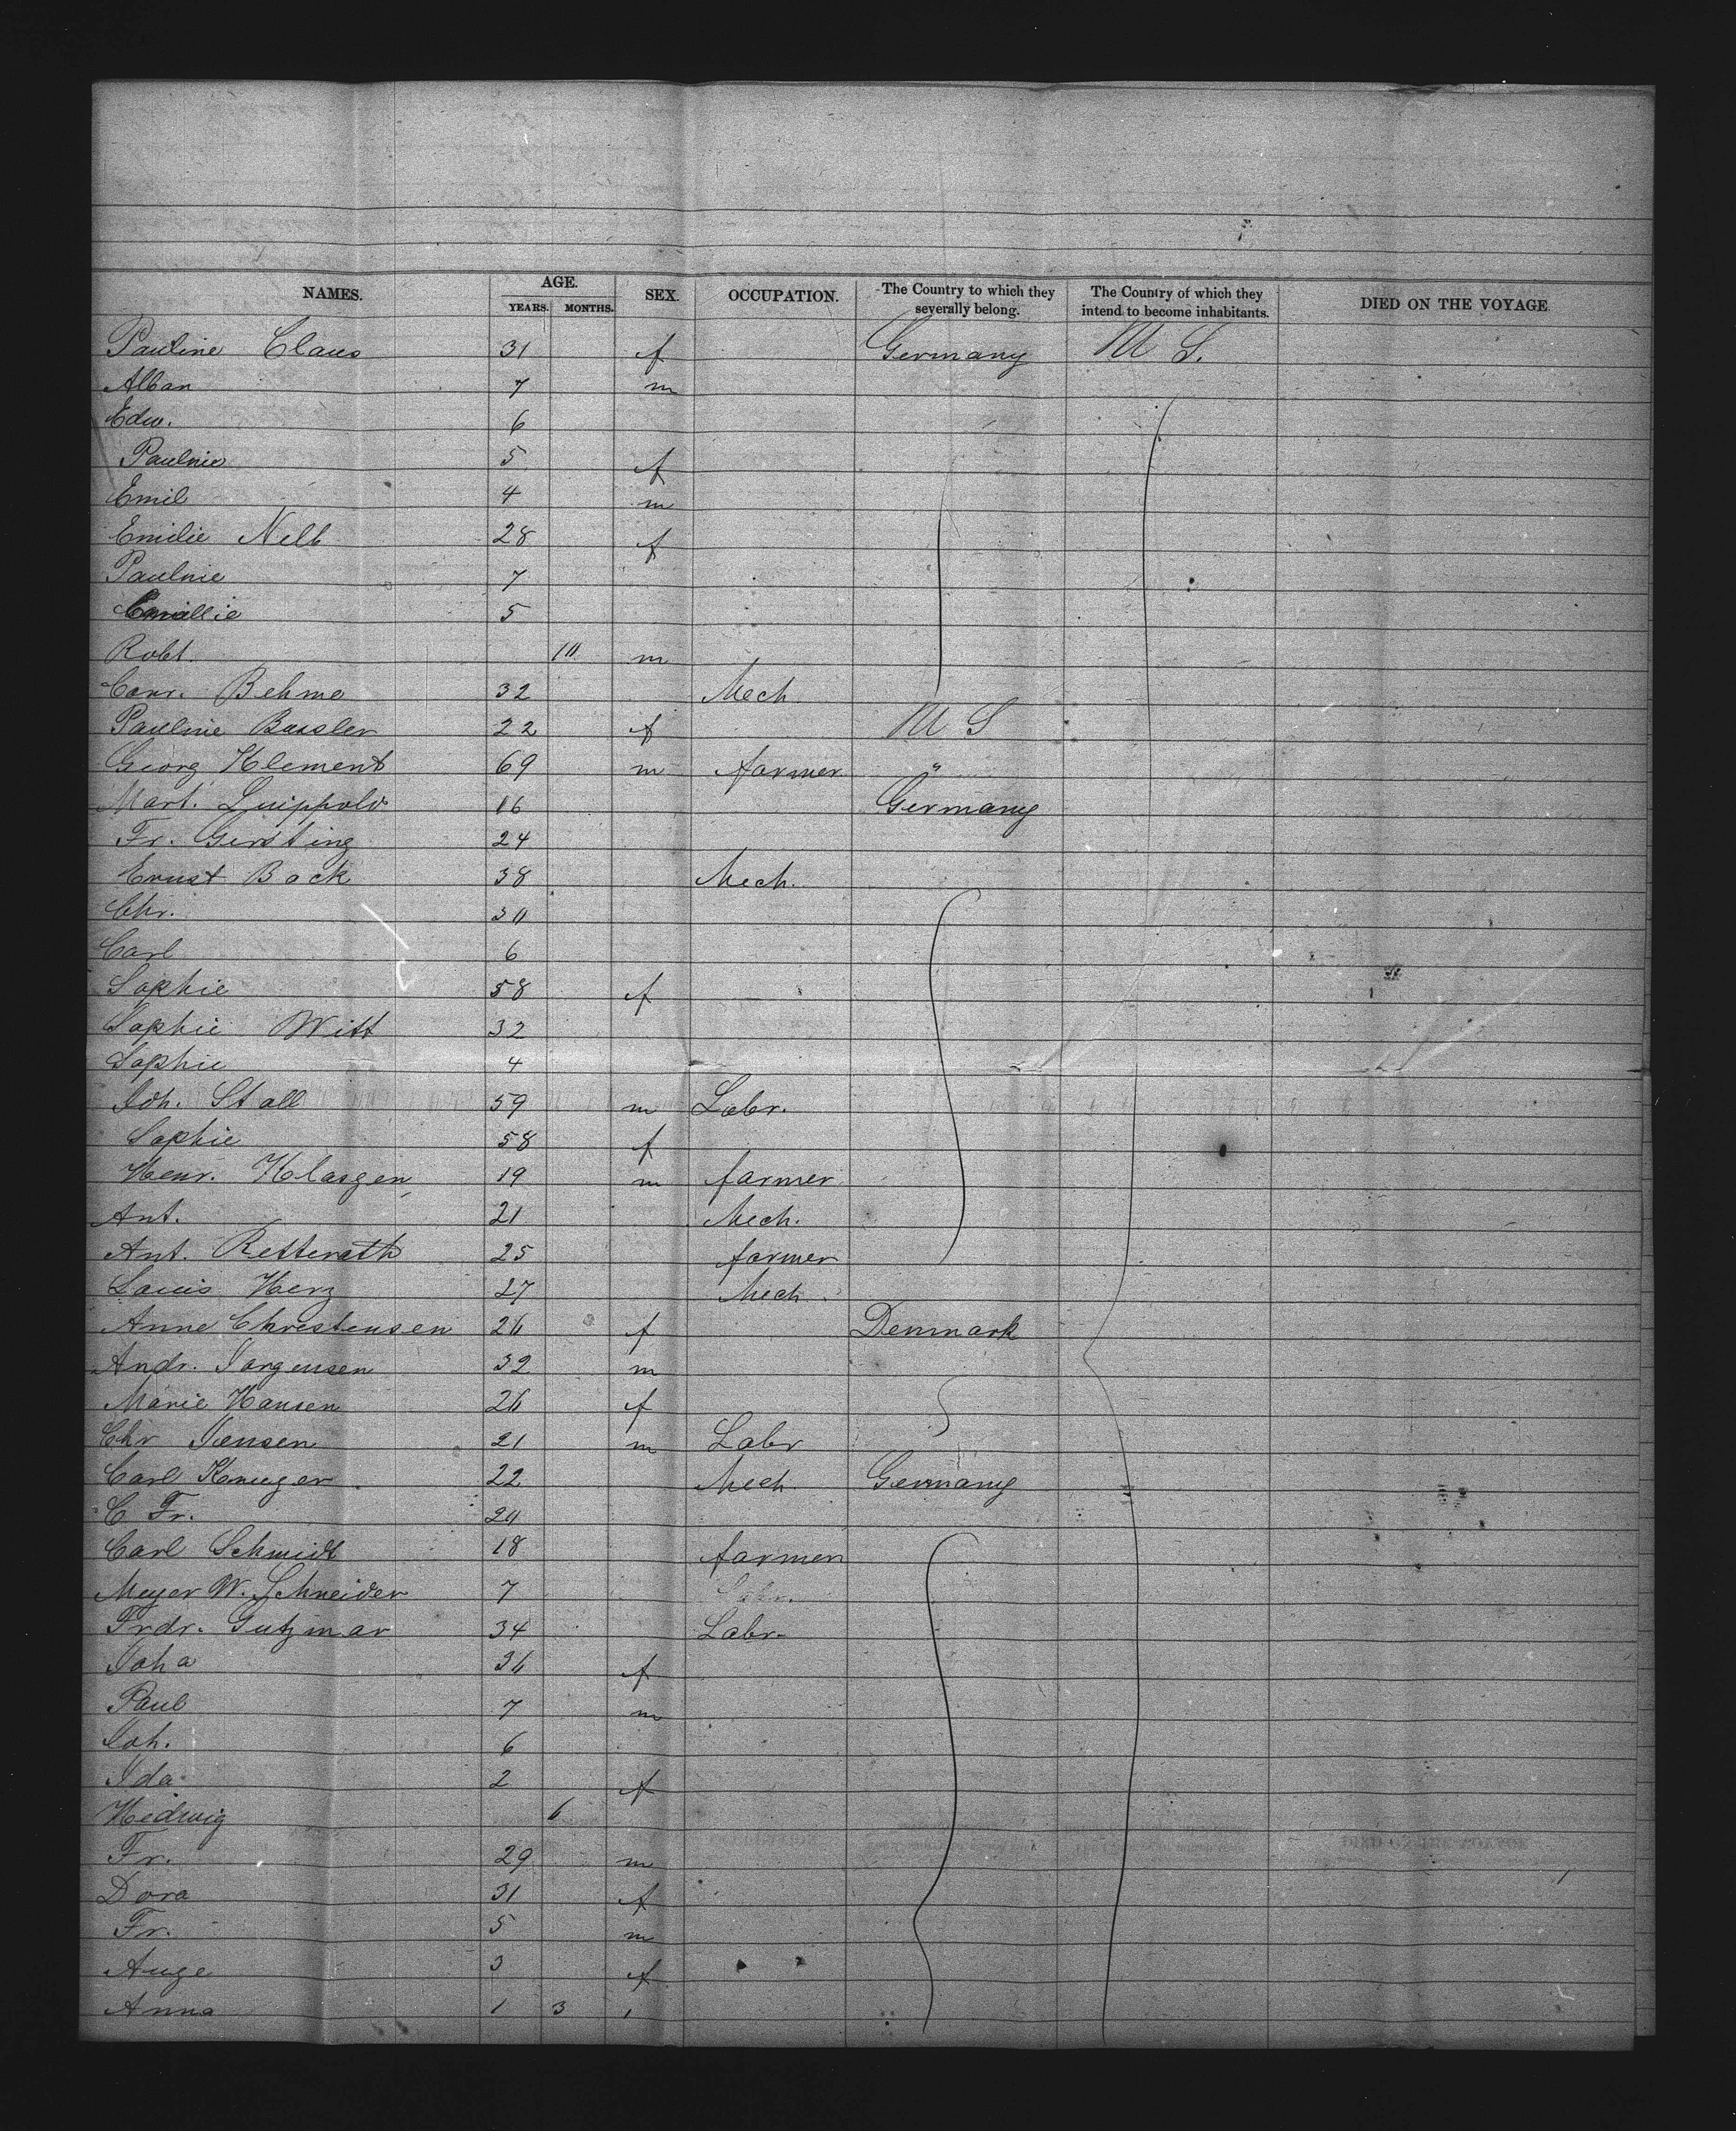 NAMES. AGE. SEX. OCCUPATION. The Country to which they severally belong. The Country of which they intend to become inhabitants. DIED ON THE VOYAGE
YEARS. MONTHS.
Pauline Claus 31 f Germany U S.
Alban 7 m
Edw. 6
Pauline 5 f
Emil 4 m
Emilie Nelb 28 f
Pauline 7
5
Robt. 10 m
Conr. Behme 32 Mech.
Pauline Bassler 22 f U S
Georg Klement 69 m farmer "
Mart. Luippold 16 Germany
Fr. Gersting 24
Ernst Bock 38 Mech.
Chr. 30
Carl 6
Sophie 58 f
Sophie Witt 32
Sophie 4
Joh. Stall 59 m Labr.
Sophie 58 f
Henr. Klasgen 19 m farmer
Ant. 21 Mech.
Ant. Retterath 25 farmer
Louis Herz 27 Mech.
Anne Christensen 26 f Denmark
Andr. Jorgensen 32 m
Marie Hansen 26 f
Chr Jensen 21 m Labr
Carl Krueger 22 Mech. Germany
C Fr. 20
Carl Schmidt 18 farmer
Meyer W. Schneider 7 Labr.
Frdr. Gutzmar 34 Labr.
Joha 36 f
Paul 7 m
Joh. 6
Ida 2 f
Hedwig 6
Fr. 29 m
Dora 31 f
Fr. 5 m
Auge 3 f
Anna 1 3